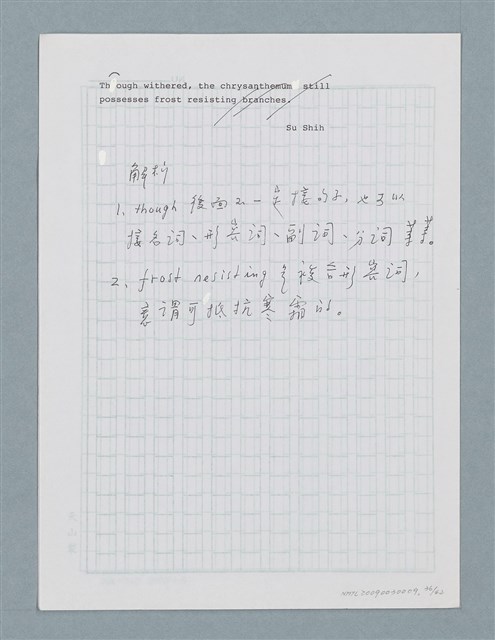 Though withered, the chrysanthemum still
possesses frost resisting branches.
Su Shih
解析
1. though 後面不一定接句子,也可以
接名詞、形容詞、副詞、分詞等等。
2. frost resisting 是複合形容詞,
意謂可抵抗寒霜的。